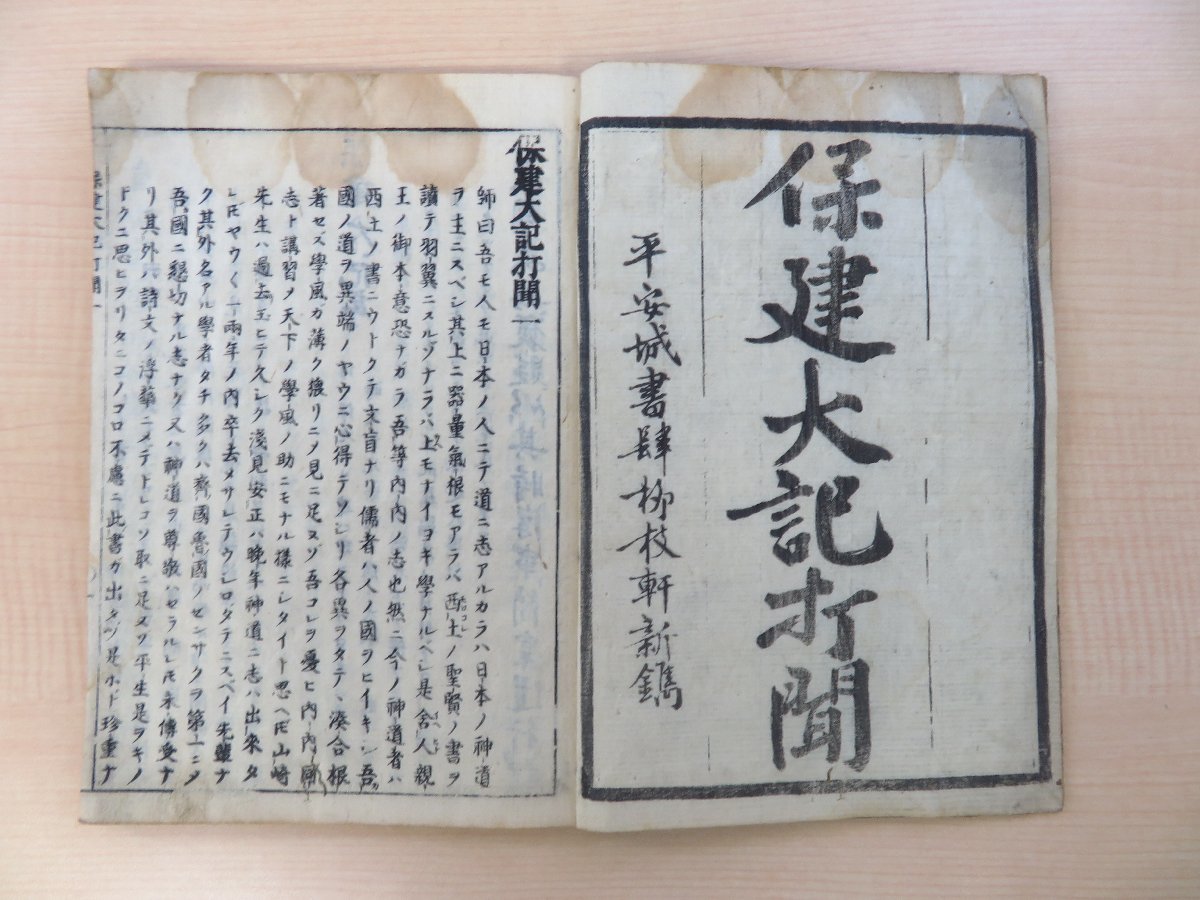 保建大記打聞
平安城書肆 柳枝軒新鐫
保建大記打聞一
師曰吾モ人モ日本ノ人ニテ道ニ志アルカラハ日本ノ神道
ヲ主ニスベシ其上ニ器量氣根モアラバ西土ノ聖賢ノ書ヲ
讀テ羽翼ニスルゾナラバ上モナイヨキ學ナルベシ是舎人親
王ノ御本意恐ナガラ吾等内内ノ志也然ニ今ノ神道者ハ
西土ノ書ニウトクテ文盲ナリ儒者ハ人ノ國ヲヒイキシ吾
國ノ道ヲ異端ノヤウニ心得テソシリ各異ヲタテ、湊合根
著セズ學風ガ薄ク猥リニメ見ニ足ヌゾ吾コレヲ憂ヒ内内同
志ト講習メ天下ノ學風ノ助ニモナル様ニシタイト思ヘ𪜈山崎
先生ハ過去玉ヒテ久シク淺見安正ハ晩年神道ニ志ハ出來タ
レ𪜈ヤウ〱一兩年ノ内卒去メサレテウシロダテニスベイ先輩ナ
ク其外名アル學者タチ多クハ齊國魯國ノセンサクヲ第一ニメ
吾國ニ懇切ナル志ナク又ハ神道ヲ尊敬ハセラルレ𪜈未傳受ナ
リ其外ハ詩文ノ浮華ニメテトレコソ取ニ足ヌゾ平生是ヲキノ
ドクニ思ヒヲリタニコノコロ不慮ニ此書ガ出タゾ是ホド珍重ナ
保建大記打聞一